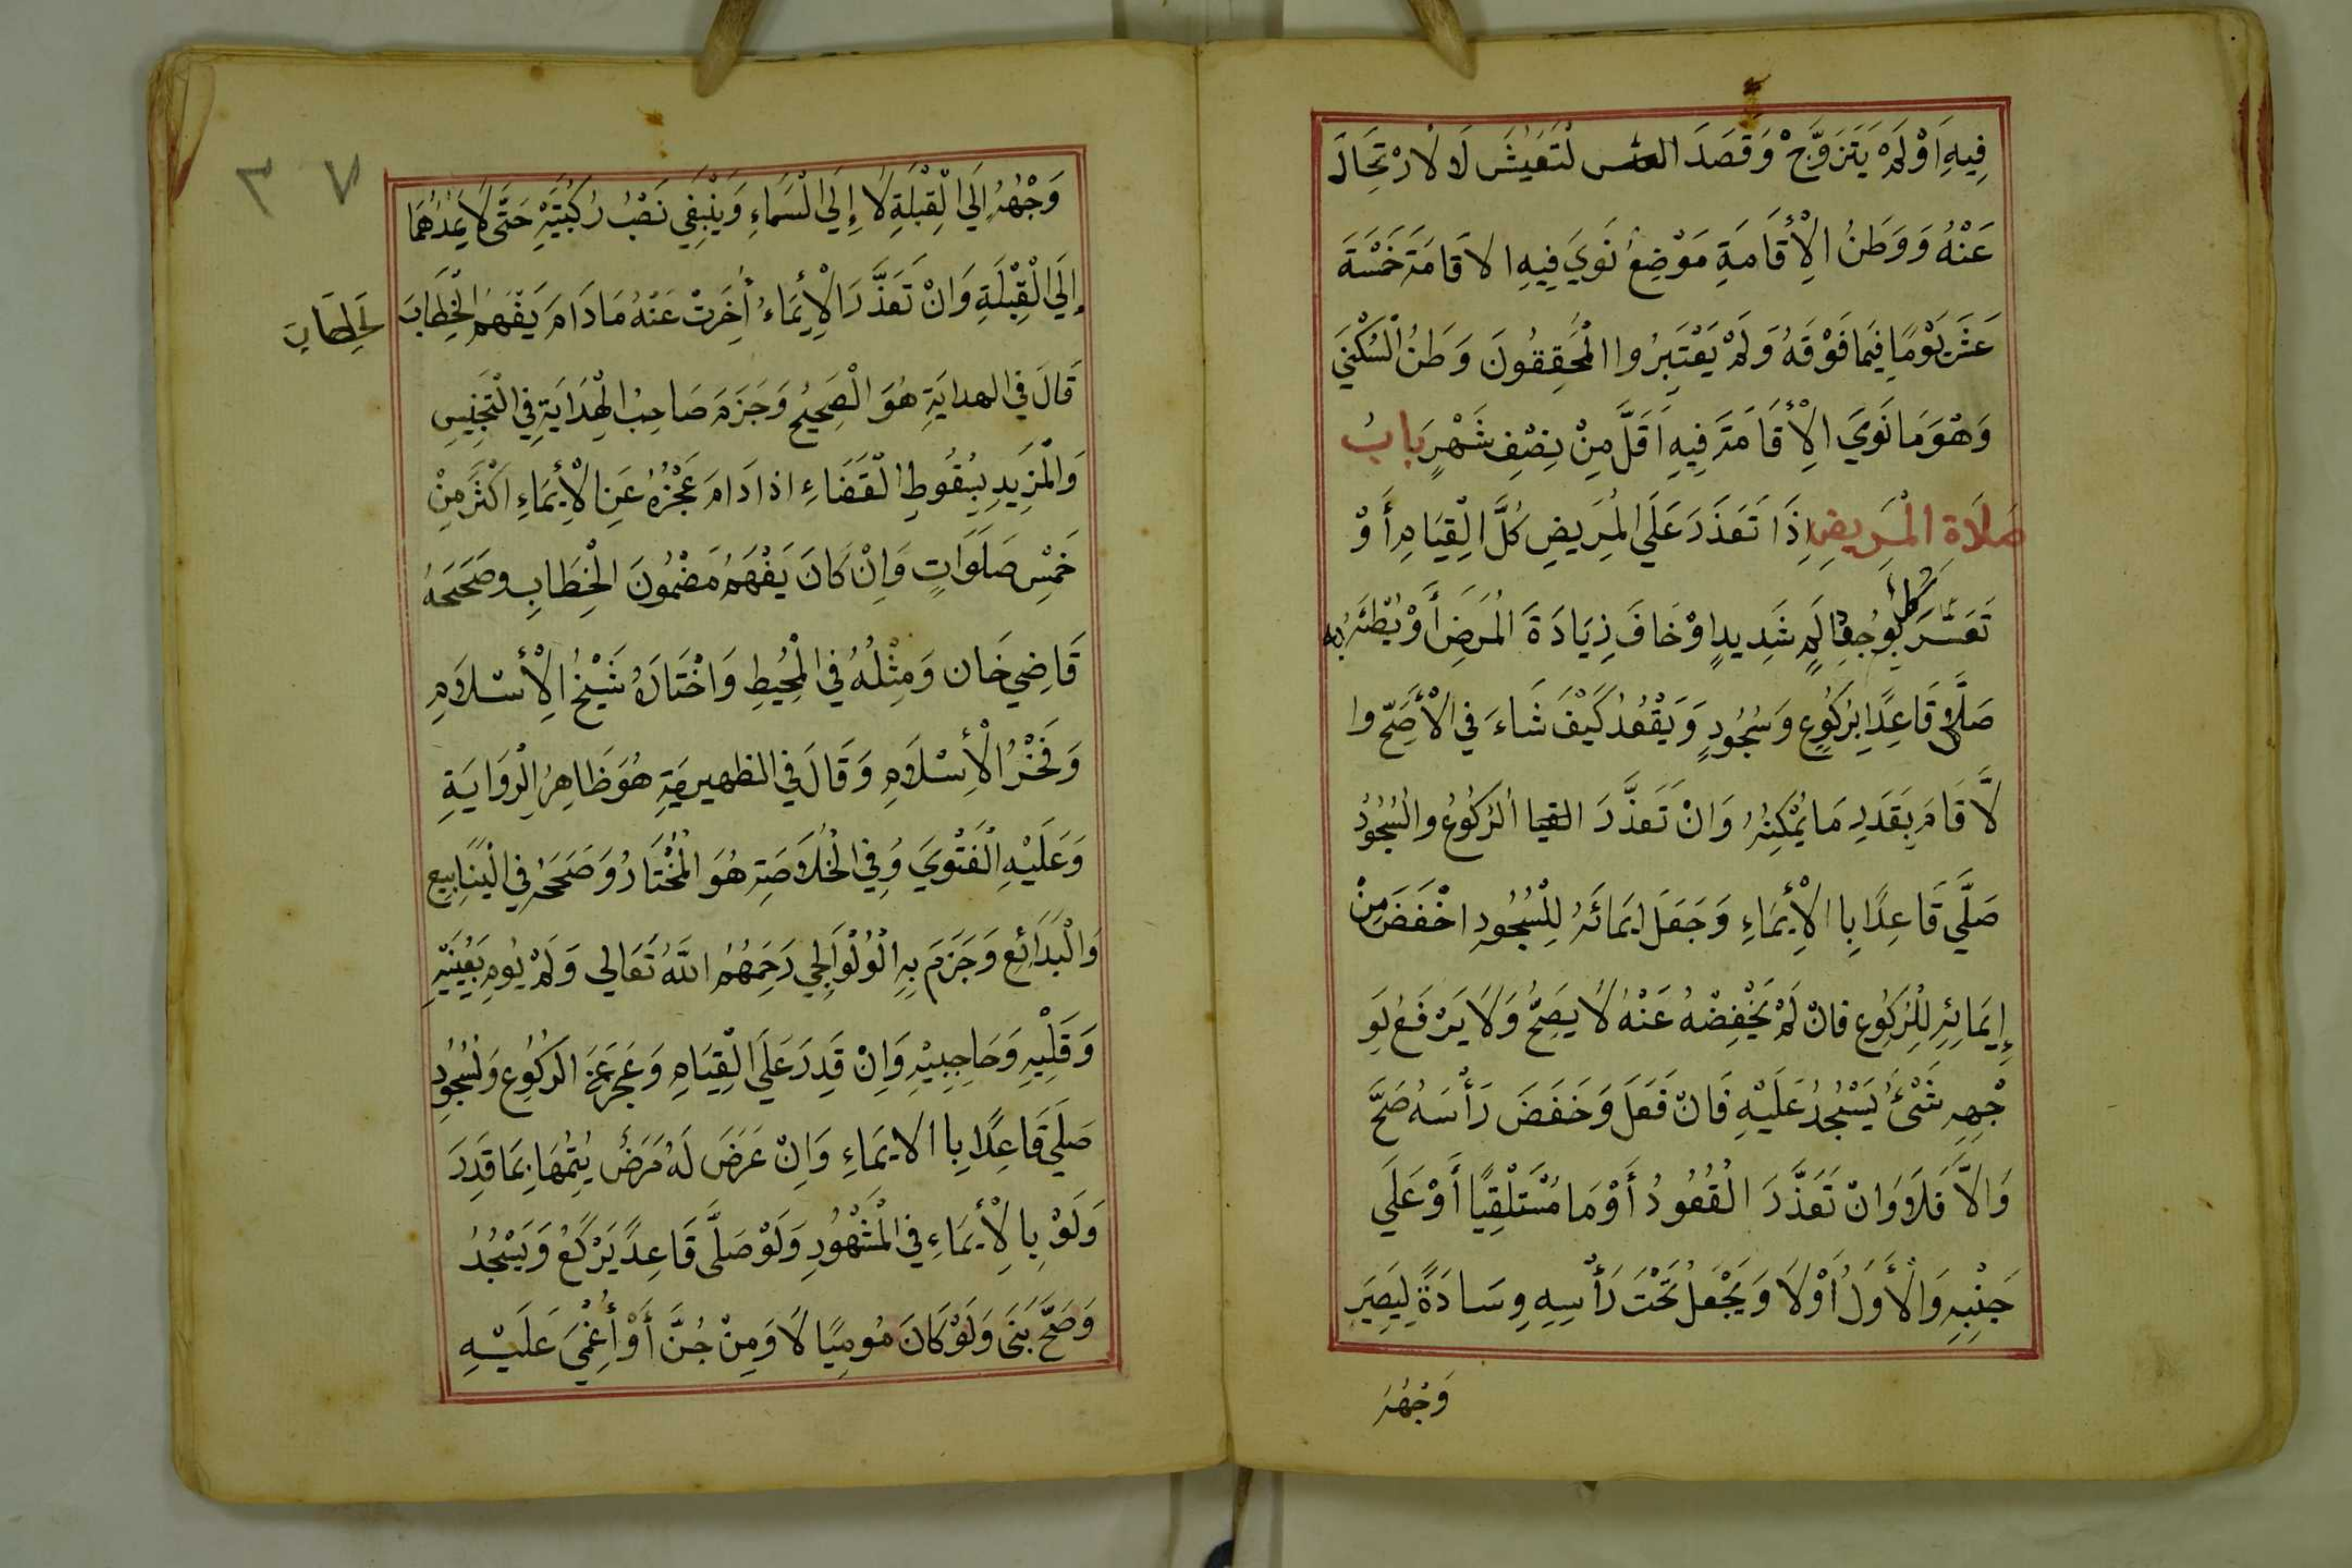 فِيهِ اَوْ لَمْ يَتَزَوَّجْ وَقَصَدَ التعيش لَا لارْتِحَالَ
عَنْهُ وَوَطَنُ الْأِقَامَةِ مَوْضِعُ نَوَيَ فِيهِ الاقَامَةَ خَمْسَةَ
عَشَرَ يَوْمًا فِيمَا فَوْقَهُ وَلَمْ يَعْتَبِرُوا الْمُحَقِقُونَ وَطَنُ الْسُكْنَي
وَهْوَ مَا نَوَيَ الْأِقَامَةَ فِيهِ اَقَلَّ مِنْ نِصْفِ شَهْرٍ بابُ
صَلَاة الْمَرِيضِ اِذَا تَعَذَرَ عَلَي الْمَرِيضِ كُلَّ الْقِيَامِ أَوْ
تَعَسَّرَ كُلُّ بِوُجُودِ اَلَمٍ شَدِيدٍ اوْ خَافَ زِيَادَةَ الْمَرَضِ أَوْ بُطْئَهُ بِهِ
صَلَّى قَاعِدًا بِرُكُوعٍ وَسُجُودٍ وَيَقْعُدُ كَيْفَ شَاءَ فِي الْأَصَحِّ وا
لَّا قَامَ بِقَدَرِ مَا يُمْكِنُهُ وَانْ تَعَذَّرَ القيا الرُكُوعُ والْسُجُودُ
صَلَّي قَاعِدًا بِا الْأِيْمَاءِ وَجَعَلَ ايمَائَهُ لِلْسُجُودِ اخْفَضَ مِنْ
إِيمَائِهِ لِلْرُكِوُعِ فَانْ لَمْ يَخْفِضْهُ عَنْهُ لَا يَصِحُّ وَلَا يَرْفَعُ لِوَ
جْهِهِ شَئْ يَسْجُدُ عَلَيْهِ فَانْ فَعَلَ وَخَفَضَ رَأْسَهُ صَحَّ
وَالاَّ فَلَا وَانْ تَعَذَّرَ الْقُعُودُ أَوْمَا مُسْتَلْقِيًا أَوْ عَلَي
جَنْبِهِ وَالْأَوَلُ أَوْلَا وَيَجْعَلُ تَحْتَ رَأْسِهِ وِسَادَةً لِيَصِيرَ
وَجْهُهُ
٣٧
وَجْهُهُ اِلَي الْقِبْلَةِ لَا إِلَي الْسَمَاءِ وَيَنْبَغِي نَصْبُ رُكْبَتَيْهِ حَتَّى لَا يَمُدُهُمَا
إِلَي الْقِبْلَةِ وَانْ تَعَذَّرَ الْأِيْمَاءُ أُخِرَتْ عَنْهُ مَادَامَ يَفْهَمُ الْخِطَابَ
لخطاب
قَالَ فِي الهدايَةِ هُوَ الْصَحِيحُ وَجَزَمَ صَاحِبُ الْهِدَايَةِ فِي الْتَجْنِيسِ
وَالْمَزِيدِ بِسُقُوطِ الْقَضَاءِ اذا دَامَ عَجْزُهُ عَنِ الْأِيمَاءِ اَكْثَرَ مِنْ
خَمْسِ صَلَوَاتٍ وَاِنْ كَانَ يَفْهَمُ مَضْمُونَ الْخِطَابِ وصَحَحَهُ
قَاضِي خَان وَمِثْلُهُ فِي الْمُحِيطِ وَاخْتَارَهُ شَيْخُ الْأِسْلَامِ
وَفَخْرُ الْأِسْلَامِ وَقَالَ فِي الظهيريَةِ هُوَ ظَاهِرُ الْرِوَايَةِ
وَعَلَيْهِ الْفَتْوَيَ وَفِي الْخُلَاصَةِ هُوَ الْمُخْتَارُ وَصَحَحَهُ فِي الْيَنَابِيع
وَالْبَدَائِعِ وَجَزَمَ بِهِ الْوُلْوَالِجِي رَحِمَهُمُ اللَّهُ تَعَالي وَلَمْ يُومِ بِعَيْنَيْهِ
وَقَلْبِهِ وَحَاجِبَيْهِ وَاِنْ قَدِرَ عَلَي الْقِيَامِ وَعَجَزَ عَنِ الرُكُوُعِ وَلسُجُودِ
صَلَي قَاعِدًا بِا الايمَاءِ وَاِنْ عَرَضَ لَهُ مَرَضُ يُتِمُهَا بِمَا قَدِرَ
وَلَوْ بِالْأِيمَاءِ فِي الْمَشْهُورِ وَلَوْ صَلَّى قَاعِدً يَرْكَعُ وَيَسْجُدُ
وَصَحَّ بَنَى وَلَوْ كَانَ مُومِيًا لَا وَمِنْ جُنَّ أَوْ أُغْمِيَ عَلَيْهِ